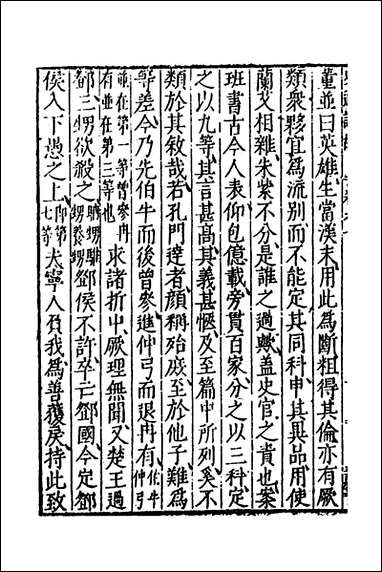 董並曰英雄生當漢末用此為斷粗得其倫亦有厥
類衆夥宜為流别而不能定其同科申其異品用使
蘭艾相雜朱紫不分是誰之過歟蓋史官之責也案
班書古今人表仰包億載旁貫百家分之以三科定
之以九等其言甚髙其義甚愜及至篇中所列奚不
類於其敘哉若孔門達者顔稱殆庶至於他子難為
等差今乃先伯牛而後曾參進仲弓而退冉有伯牛仲弓
並在第一等曾參冉有並在第三等也求諸折中厥理無聞又楚王過
鄧三甥欲殺之聃甥騅甥養甥鄧侯不許卒亡鄧國今定鄧
侯入下愚之上即第七等夫寧人負我為善獲戾持此致